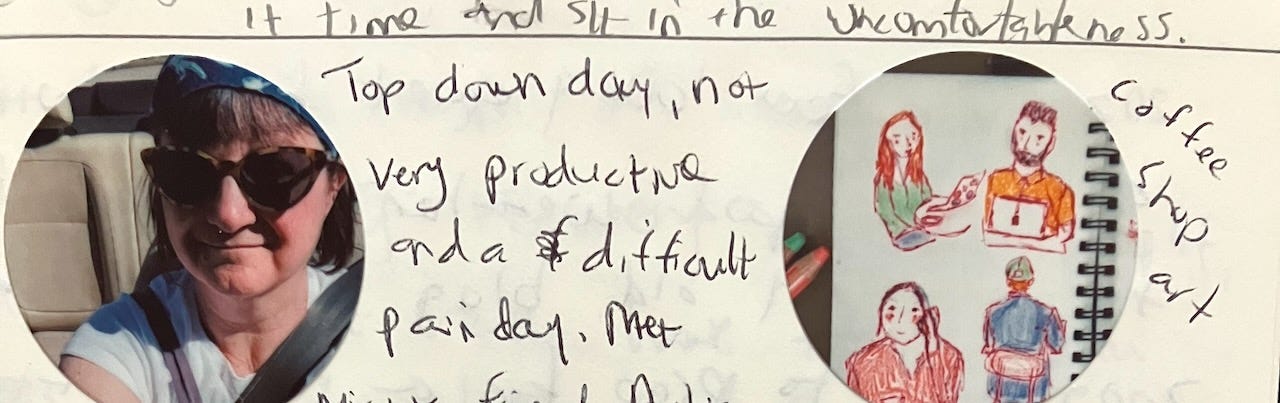 it time and sit in the uncomfortableness.
Top down day, not
very productive
and a difficult
pain day. Met
friend
coffee
shop
art